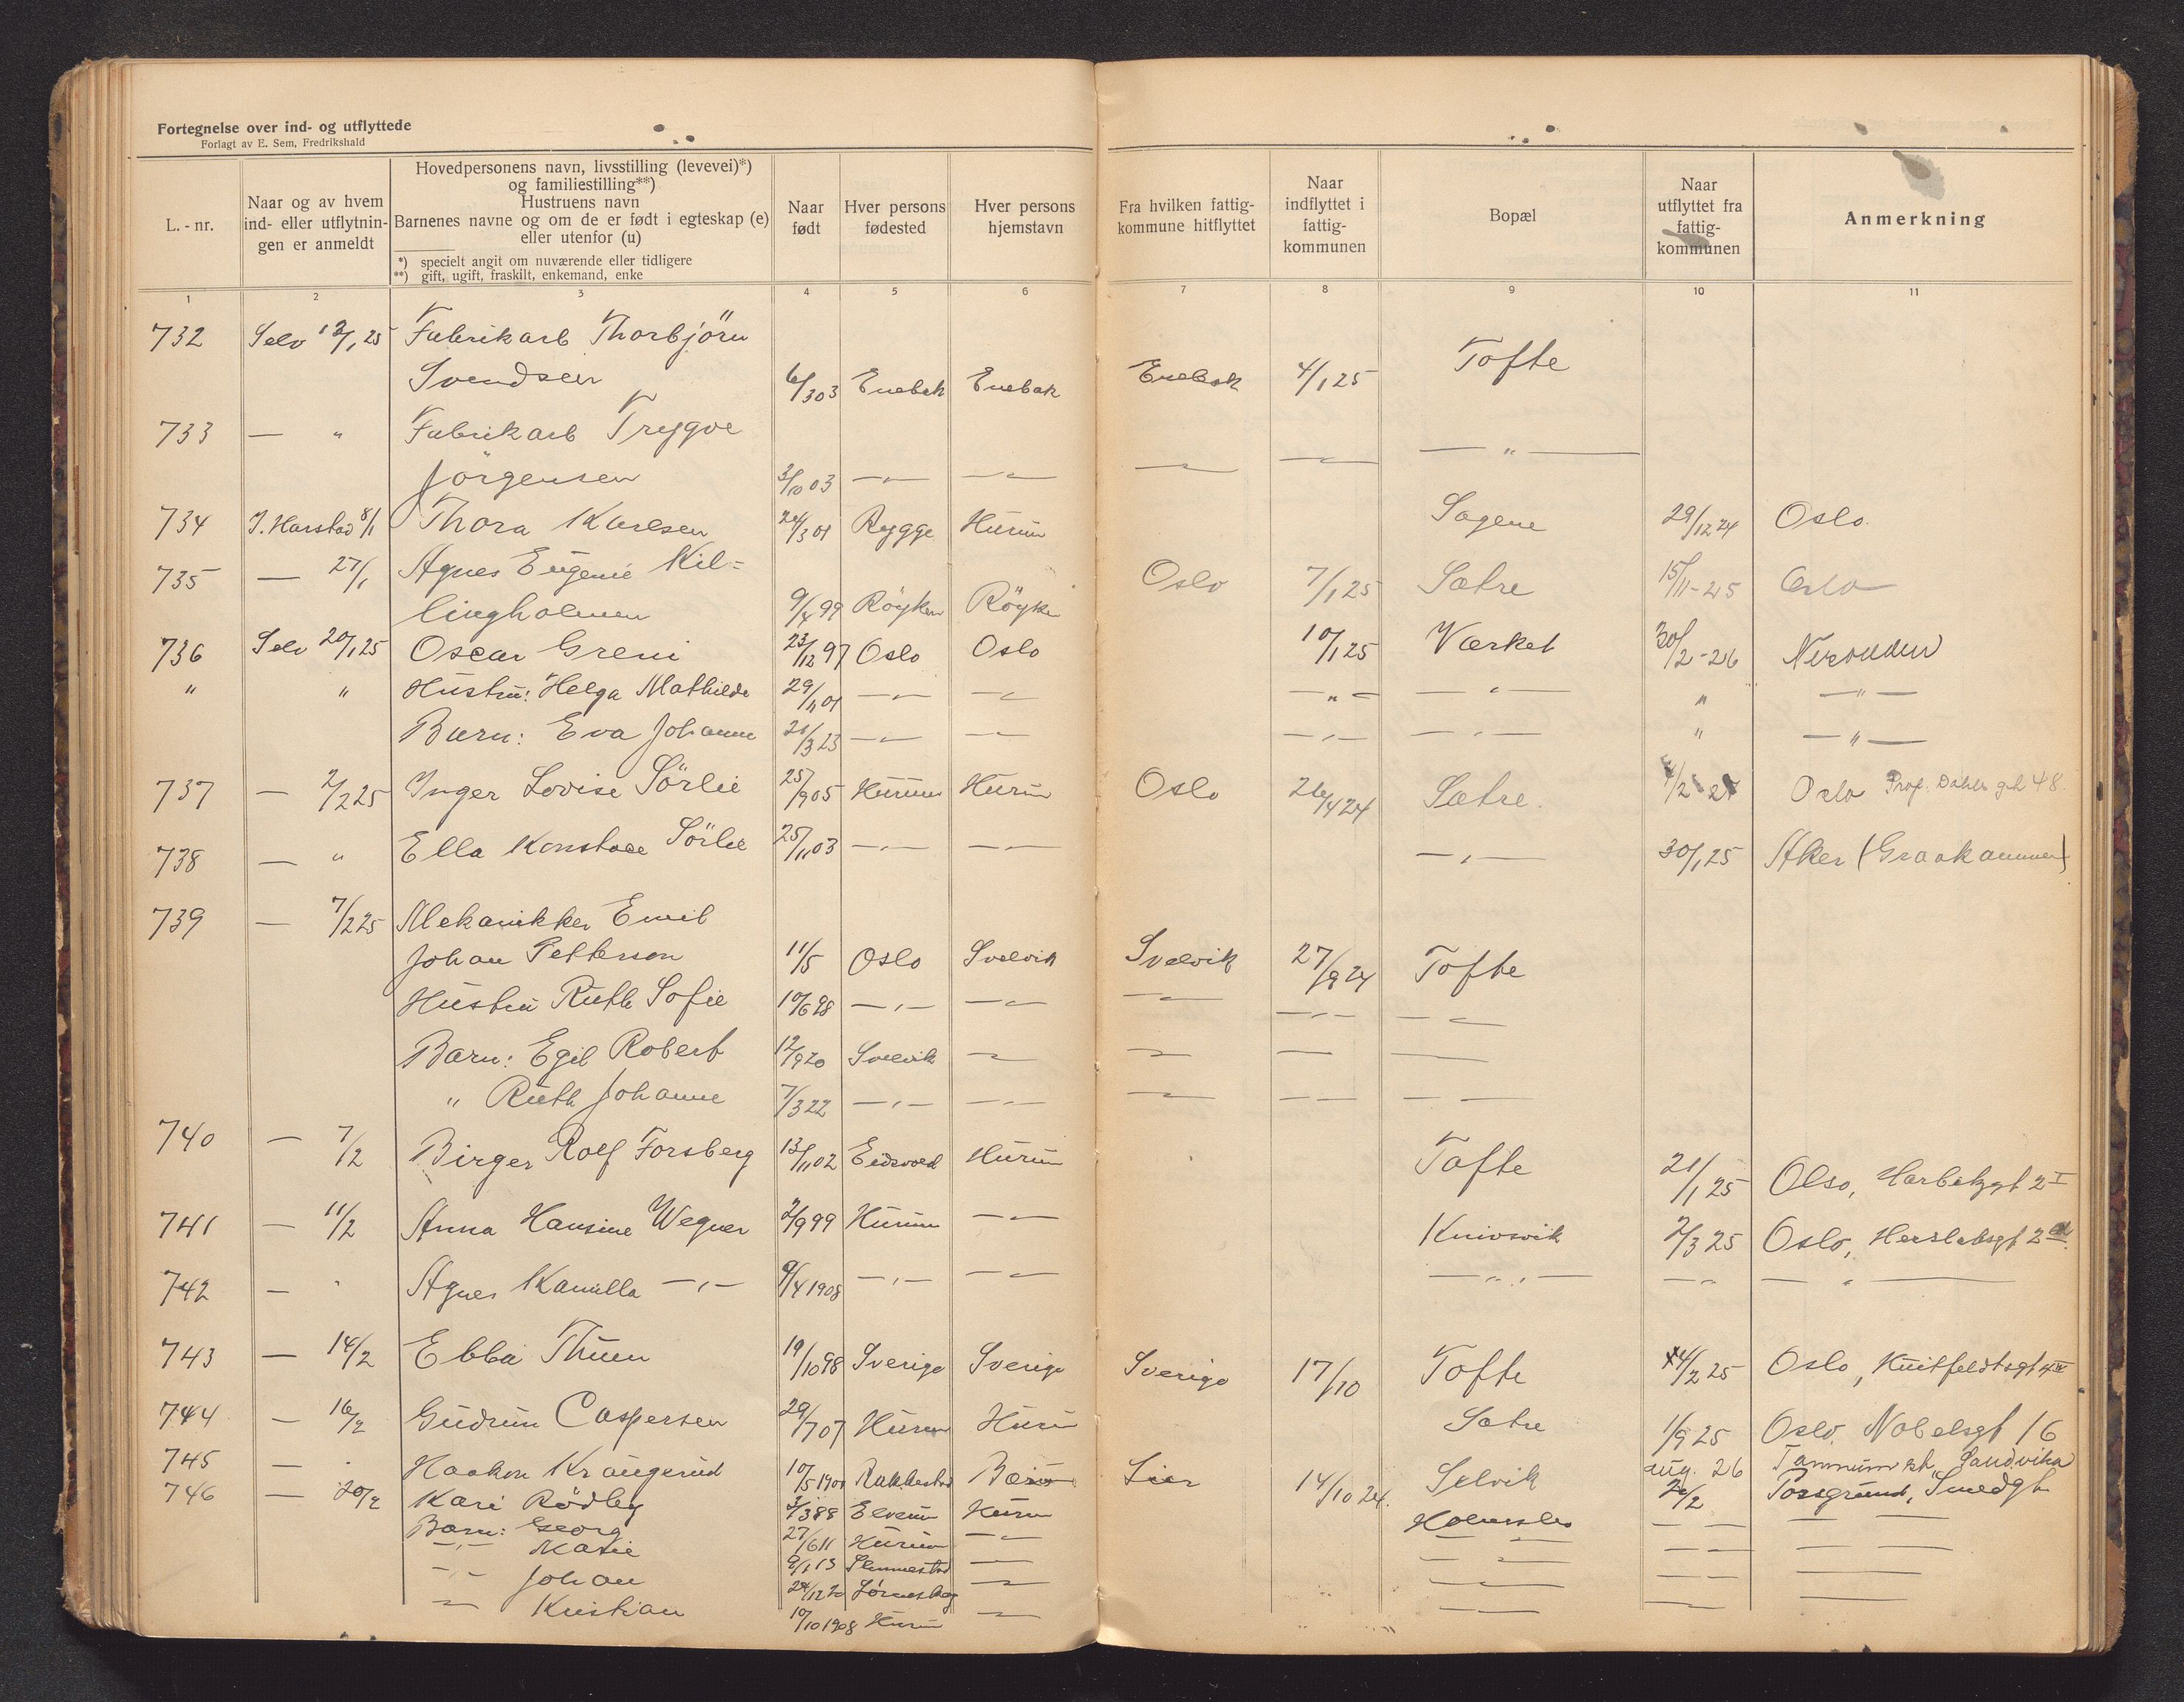 Fortegnelse over ind- og utflyttede
Forlagt av E. Sem, Fredrikshald
L.-nr.
Naar og av hvem ind- eller utflytnin-gen er anmeldt
Hovedpersonens navn, livsstilling (levevei)*)
og familiestilling**)
Hustruens navn
Barnenes navne og om de er født i egteskap (e)
eller utenfor (u)
*) specielt angit om nuværende eller tidligere
**) gift, ugift, fraskilt, enkemand, enke
Naar født
Hver persons fødested
Hver persons hjemstavn
Fra hvilken fattig-kommune hitflyttet
Naar indflyttet i fattig-kommunen
Bopæl
Naar utflyttet fra fattig-kommunen
Anmerkning
1 2 3 4 5 6 7 8 9 10 11
732 Selv 12/1 25 Fabrikarb Thorbjörn
Svendsen 6/3 03 Enebak Enebak Enebak 4/1 25 Tofte
733 — " Fabrikarb Trygve
Jörgensen 3/10 03 —"— —"— —"— —"— —"—
734 J. Harstad 8/1 Thora Karlsen 24/3 01 Rygge Hurum Sagene 29/12 24 Oslo
735 — 27/1 Agnes Eugenie Kil=
lingholmen 9/4 99 Röyken Röyken Oslo 7/1 25 Sætre 15/11-25 Oslo
736 Selv 20/1 25 Oscar Greni 23/12 97 Oslo Oslo 10/1 25 Værket 30/2-26
" " Hustru: Helga Mathilde 29/11 01 —"— —"— —"— —"— " —"—
Barn: Eva Johanne 21/3 23 —"— —"— —"— —"— " —"—
737 — 2/2 25 Inger Lovise Sörlie 25/9 05 Hurum Hurum Oslo 26/4 24 Sætre. Oslo Prof. Dahls gt 48.
738 — " Ella Konstace Sörlie 25/11 03 —"— —"— —"— 30/1 25 Aker (Graakammen)
739 — 7/2 25 Mekanikker Emil
Johan Petterson 11/5 Oslo Svelvik Svelvik 27/9 24 Tofte
Hustru Ruth Sofie 10/6 98 —"— —"— —"— —"— —"—
Barn: Egil Robert 12/9 20 Svelvik —"— —"— — —
" Ruth Johanne 7/3 22 —"— —"— —"— — — — —
740 — 7/2 Birger Rolf Forsberg 13/11 02 Eidsvold Hurum Tofte 21/1 25 Olso, Harbitzgt 2 I
741 — 11/2 Anna Hansine Wegner 2/9 99 Hurum —"— Knivsvik 2/3 25 Oslo, Herslebsgt 2
742 — " Agnes Kamilla —"— 9/4 1908 —"— —"— —"— —"— —"—
743 — 14/2 Ebba Thuen 19/10 98 Sverige Sverige Sverige 17/10 Tofte 14/2 25 Oslo, Huitfeldtsgt 4
744 — 16/2 Gudrun Caspersen 29/7 07 Hurum Hurum Sætre 1/9 25 Oslo. Nobelsgt 16
745 — " Haakon Kraugerud 10/5 1901 Rakkestad Lier 14/10 24. Selvik aug. 26 Tannum st, Sandvika
746 — 20/2 Kari Rödby 3/3 88 Elverum Hurum Holmsbo 20/2 Porsgrund, Smedgt
Barn: Georg 27/6 11 Hurum —"— —"— — — — —
—"— Marie 9/1 13 Slemmestad — —"— — — —
—"— Johan 24/12 20 Lørenskog —"— —"— — — —
—"— Kristian 10/10 1908 Hurum —"— —"— — — —